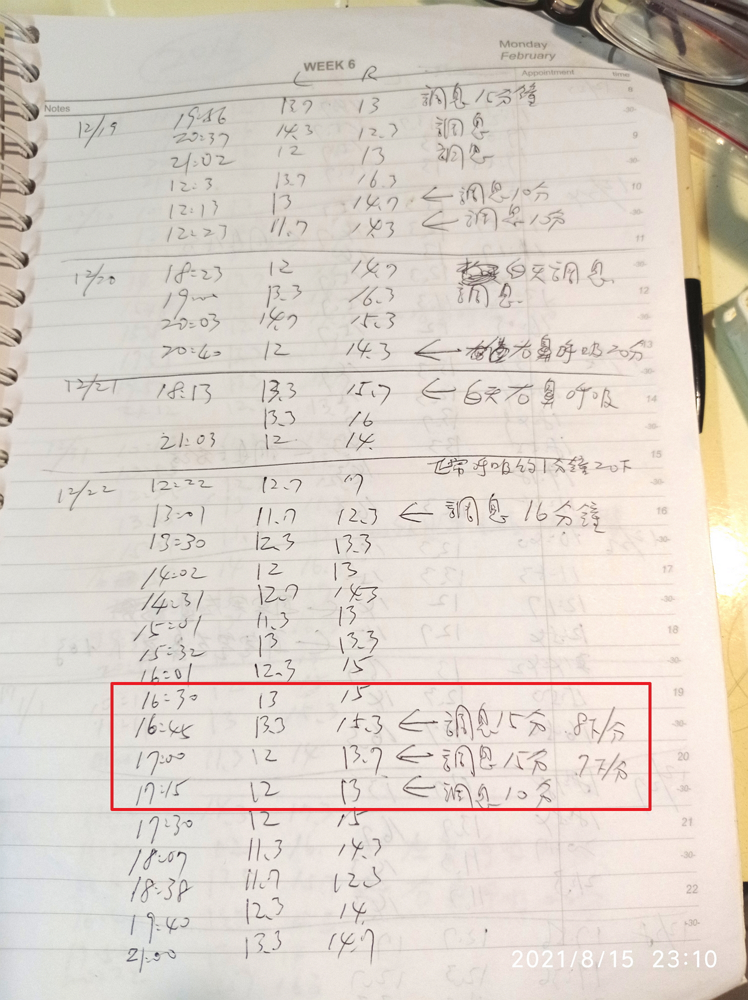 Monday
February
WEEK 6
L R
Appointment time
Notes
12/19 19:56 13.7 13 調息15分鐘
20:37 14.3 12.3 調息
21:02 12 13 調息
12:3 13.7 16.3
12:13 13 14.7 ← 調息10分
12:23 11.7 14.3 ← 調息15分
12/20 18:23 12 14.7 白天調息
13.3 16.3 調息
20:03 14.7 15.3
20:40 12 14.3 ← 右鼻呼吸20分
12/21 18:13 13.3 15.7 ← 白天右鼻呼吸
13.3 16
21:03 12 14
正常呼吸約1分鐘20下
12/22 12:22 12.7 17
13:01 11.7 12.3 ← 調息16分鐘
13:30 12.3 13.3
14:02 12 13
14:31 12.7 14.3
15:01 11.3 13
15:32 13 13.3
16:01 12.3 15
16:30 13 15
16:45 13.3 15.3 ← 調息15分 8下/分
17:00 12 13.7 ← 調息15分 7下/分
17:15 12 13 ← 調息10分
17:30 12 15
18:07 11.3 14.3
18:38 11.7 12.3
19:40 12.3 14
21:00 13.3 14.7
8
9
10
11
12
14
15
16
17
18
19
20
21
22
2021/8/15 23:10